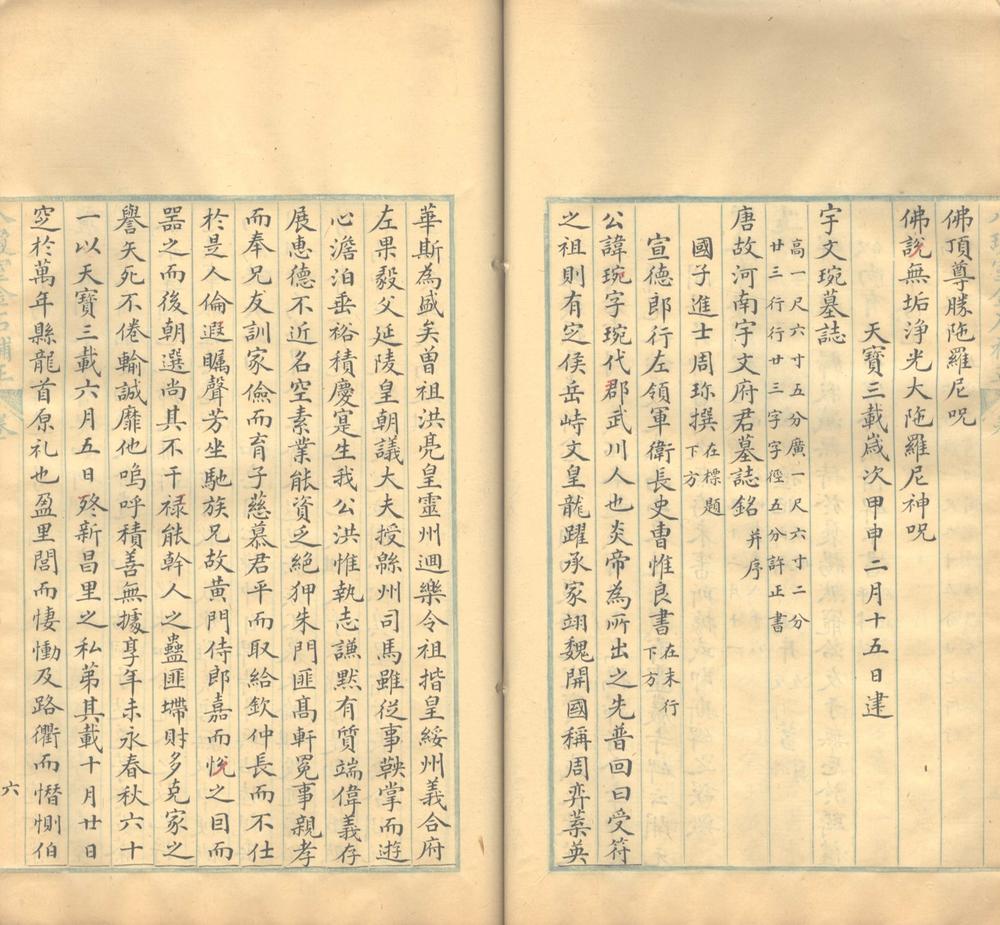 佛頂尊勝陁羅尼呪
佛說無垢淨光大陁羅尼神呪
天寶三載嵗次甲申二月十五日建
宇文琬墓誌
高一尺六寸五分廣一尺六寸二分
廿三行行廿三字字徑五分許正書
唐故河南宇文府君墓誌銘并序
國子進士周珎撰在標題下方
宣德郎行左領軍衛長史曹惟良書在末行下方
公諱琬字琬代郡武川人也炎帝為所出之先普回曰受符
之祖則有定侯岳峙文皇龍躍承家翊魏開國稱周弈葉英
華斯為盛矣曽祖洪亮皇靈州迴樂令祖揩皇綏州義合府
左果毅父延陵皇朝議大夫授緜州司馬雖從事鞅掌而遊
心澹泊垂裕積慶寔生我公洪惟執志謙默有質端偉義存
展惠德不近名空素業能資乏絕狎朱門匪高軒冕事親孝
而奉兄友訓家儉而育子慈慕君平而取給欽仲長而不仕
於是人倫遐矚聲芳坐馳族兄故黃門侍郎嘉而悅之目而
器之而後朝選尚其不干祿能幹人之蠱匪墆財多克家之
譽矢死不倦輸誠靡他嗚呼積善無據享年未永春秋六十
一以天寶三載六月五日終新昌里之私第其載十月廿日
窆於萬年縣龍首原礼也盈里閭而悽慟及路衢而憯惻伯
六